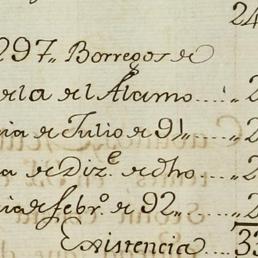 24
297,, Borregos de
de la del Álamo....,,2
cia de Julio de 91,,....2
a de Diz.e de dho....2
cia de febr.o de 92,,....2
Existencia 33